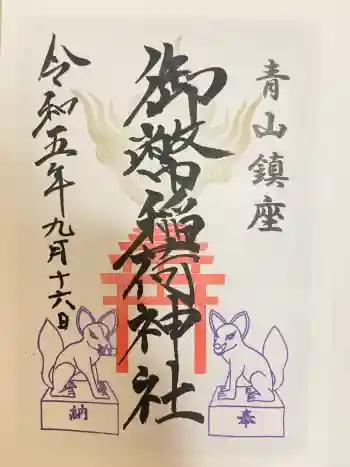 青山鎮座
御嶽稲荷神社
令和五年九月十六日
奉
納